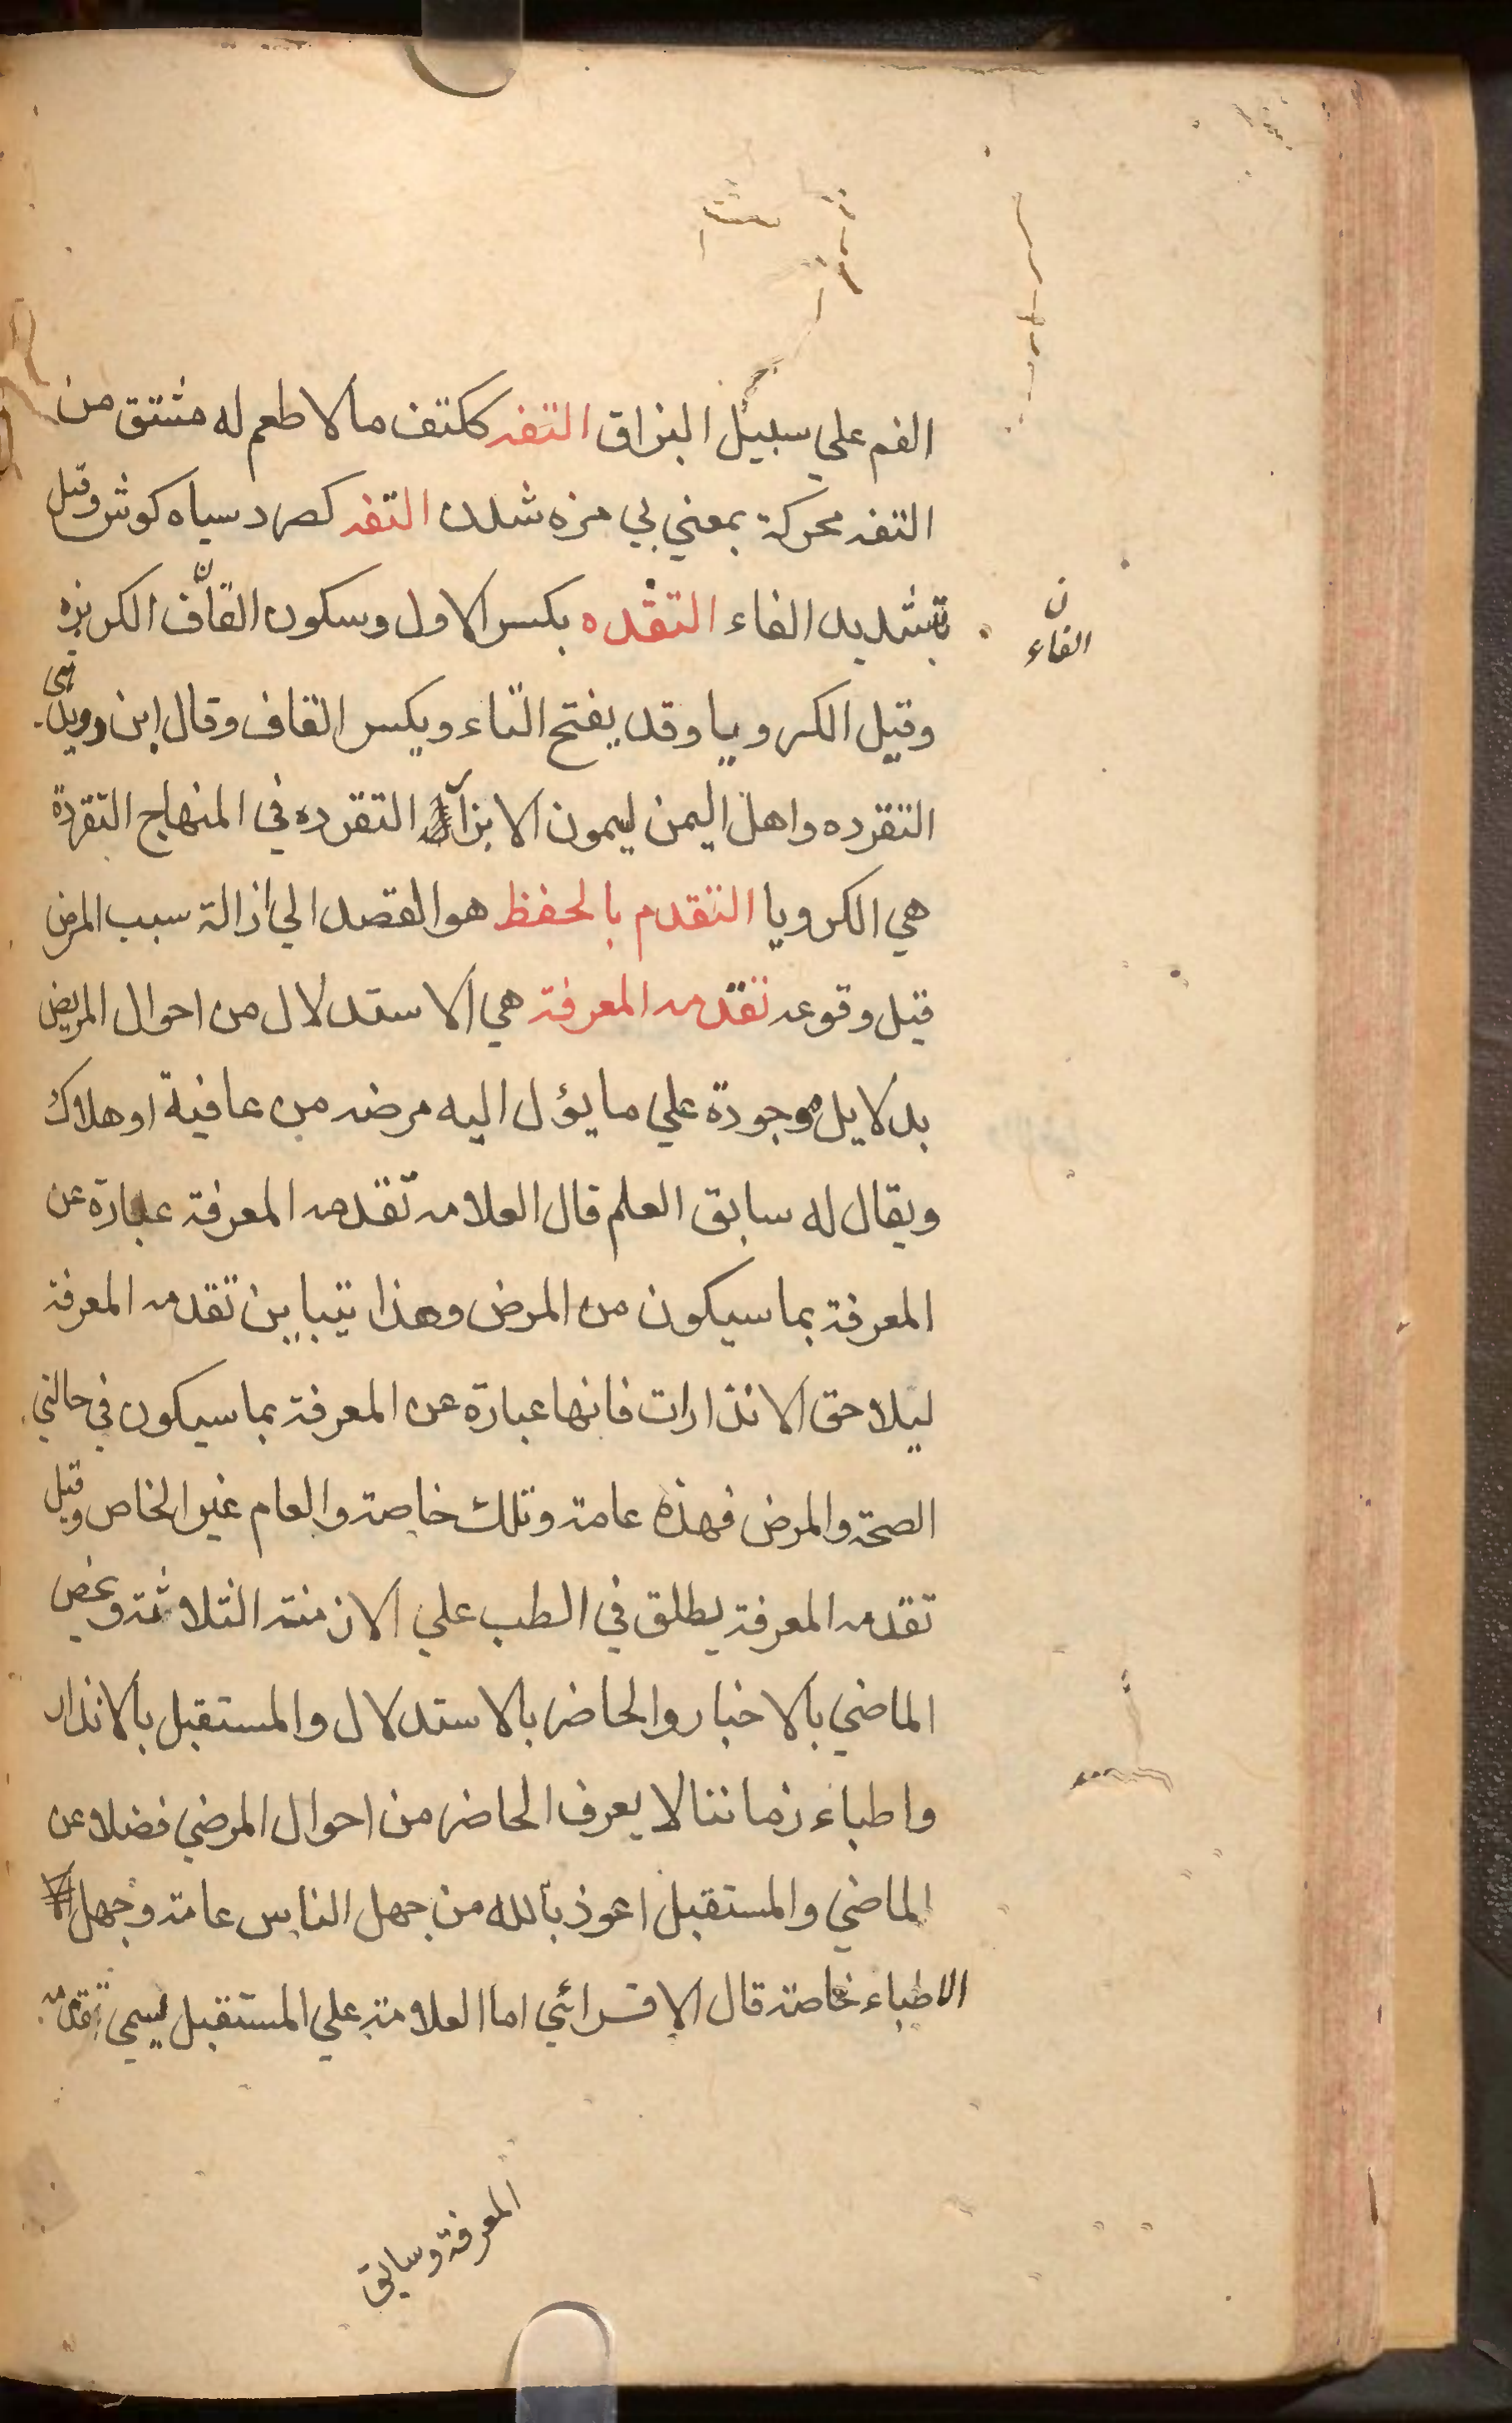 الفم علي سبيل البزاق التفه ككتف مالا طعم له مشتق من
التفه محركة بمعني بي مزه شدن التفه كصرد سياه كوش وقيل
بتشديد الفاء التقده بكسر الاول وسكون القاف الكزبره
ن
الفاء
وقيل الكرويا وقد يفتح التاء ويكسر القاف وقال ابن
التقرده واهل اليمن ليمون الابزار التقرده في المنهاج التقردة
هي الكرويا التقدم بالحفظ هو القصد الي ازالة سبب المرض
قبل وقوعه تقدمه المعرفة هي الاستدلال من احوال المريض
بدلايل موجودة علي ما يؤل اليه مرضه من عافية او هلاك
ويقال له سابق العلم قال العلامه تقدمه المعرفة عبارة عن
المعرفة بما سيكون من المرض وهذا يتباين تقدمه المعرفة
ليلاحق الانذارات فانها عبارة عن المعرفة بما سيكون في حالتي
الصحة والمرض فهذه عامة وتلك خاصة والعام غير الخاص وقيل
تقدمه المعرفة يطلق في الطب علي الازمنة الثلاثة ويخص
الماضي بالاخبار والحاضر بالاستدلال والمستقبل بالانذار
واطباء زماننا لا يعرف الحاضر من احوال المرضي فضلا عن
الماضي والمستقبل اعوذ بالله من جهل الناس عامة وجهل
الاطباء خاصة قال الاقسرائي اما العلامة علي المستقبل يسمي تقدمه
المعرفة وسابق